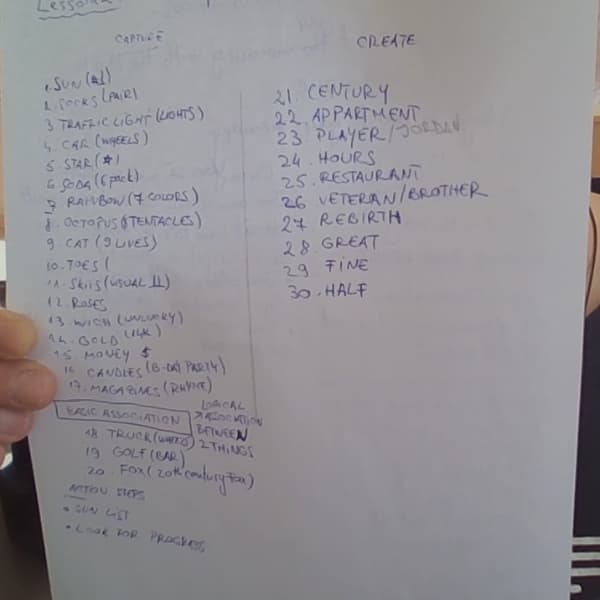 CAPTURE
1. SUN (#1)
2. SOCKS (PAIR)
3 TRAFFIC LIGHT (LIGHTS)
4. CAR (WHEELS)
5. STAR (☆)
6 SODA (6 pack)
7 RAINBOW (7 COLORS)
8. OCTOPUS (TENTACLES)
9. CAT (9 LIVES)
10. TOES (
11. SKIIS (USUAL 11)
12. ROSES
13. WICH (UNLUCKY)
14. GOLD (14K)
15. MONEY $
16 CANDLES (B-DAY PARTY)
17. MAGAZINES (RHYME)
BASIC ASSOCIATION
LOGICAL
ASSOCIATION
BETWEEN
2 THINGS
18 TRUCK (WHEELS)
19 GOLF (BAR)
20. FOX (20th century Fox)
ACTION STEPS
• SUN LIST
• LOOK FOR PROGRESS
CREATE
21. CENTURY
22. APPARTMENT
23 PLAYER/JORDAN
24. HOURS
25. RESTAURANT
26 VETERAN/BROTHER
27 REBIRTH
28 GREAT
29 FINE
30. HALF